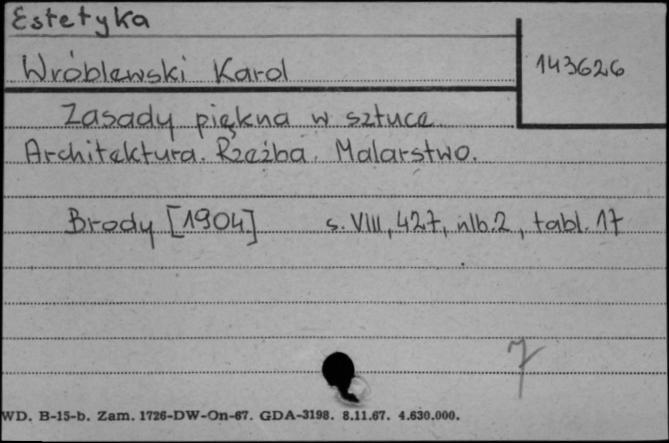 Estetyka
Wróblewski Karol
143626
Zasady piękna w sztuce.
Architektura. Rzeźba. Malarstwo.
Brody [1904] s. VIII, 427, nlb. 2, tabl. 17
7
WD. B-15-b. Zam. 1726-DW-On-67. GDA-3198. 8.11.67. 4.630.000.